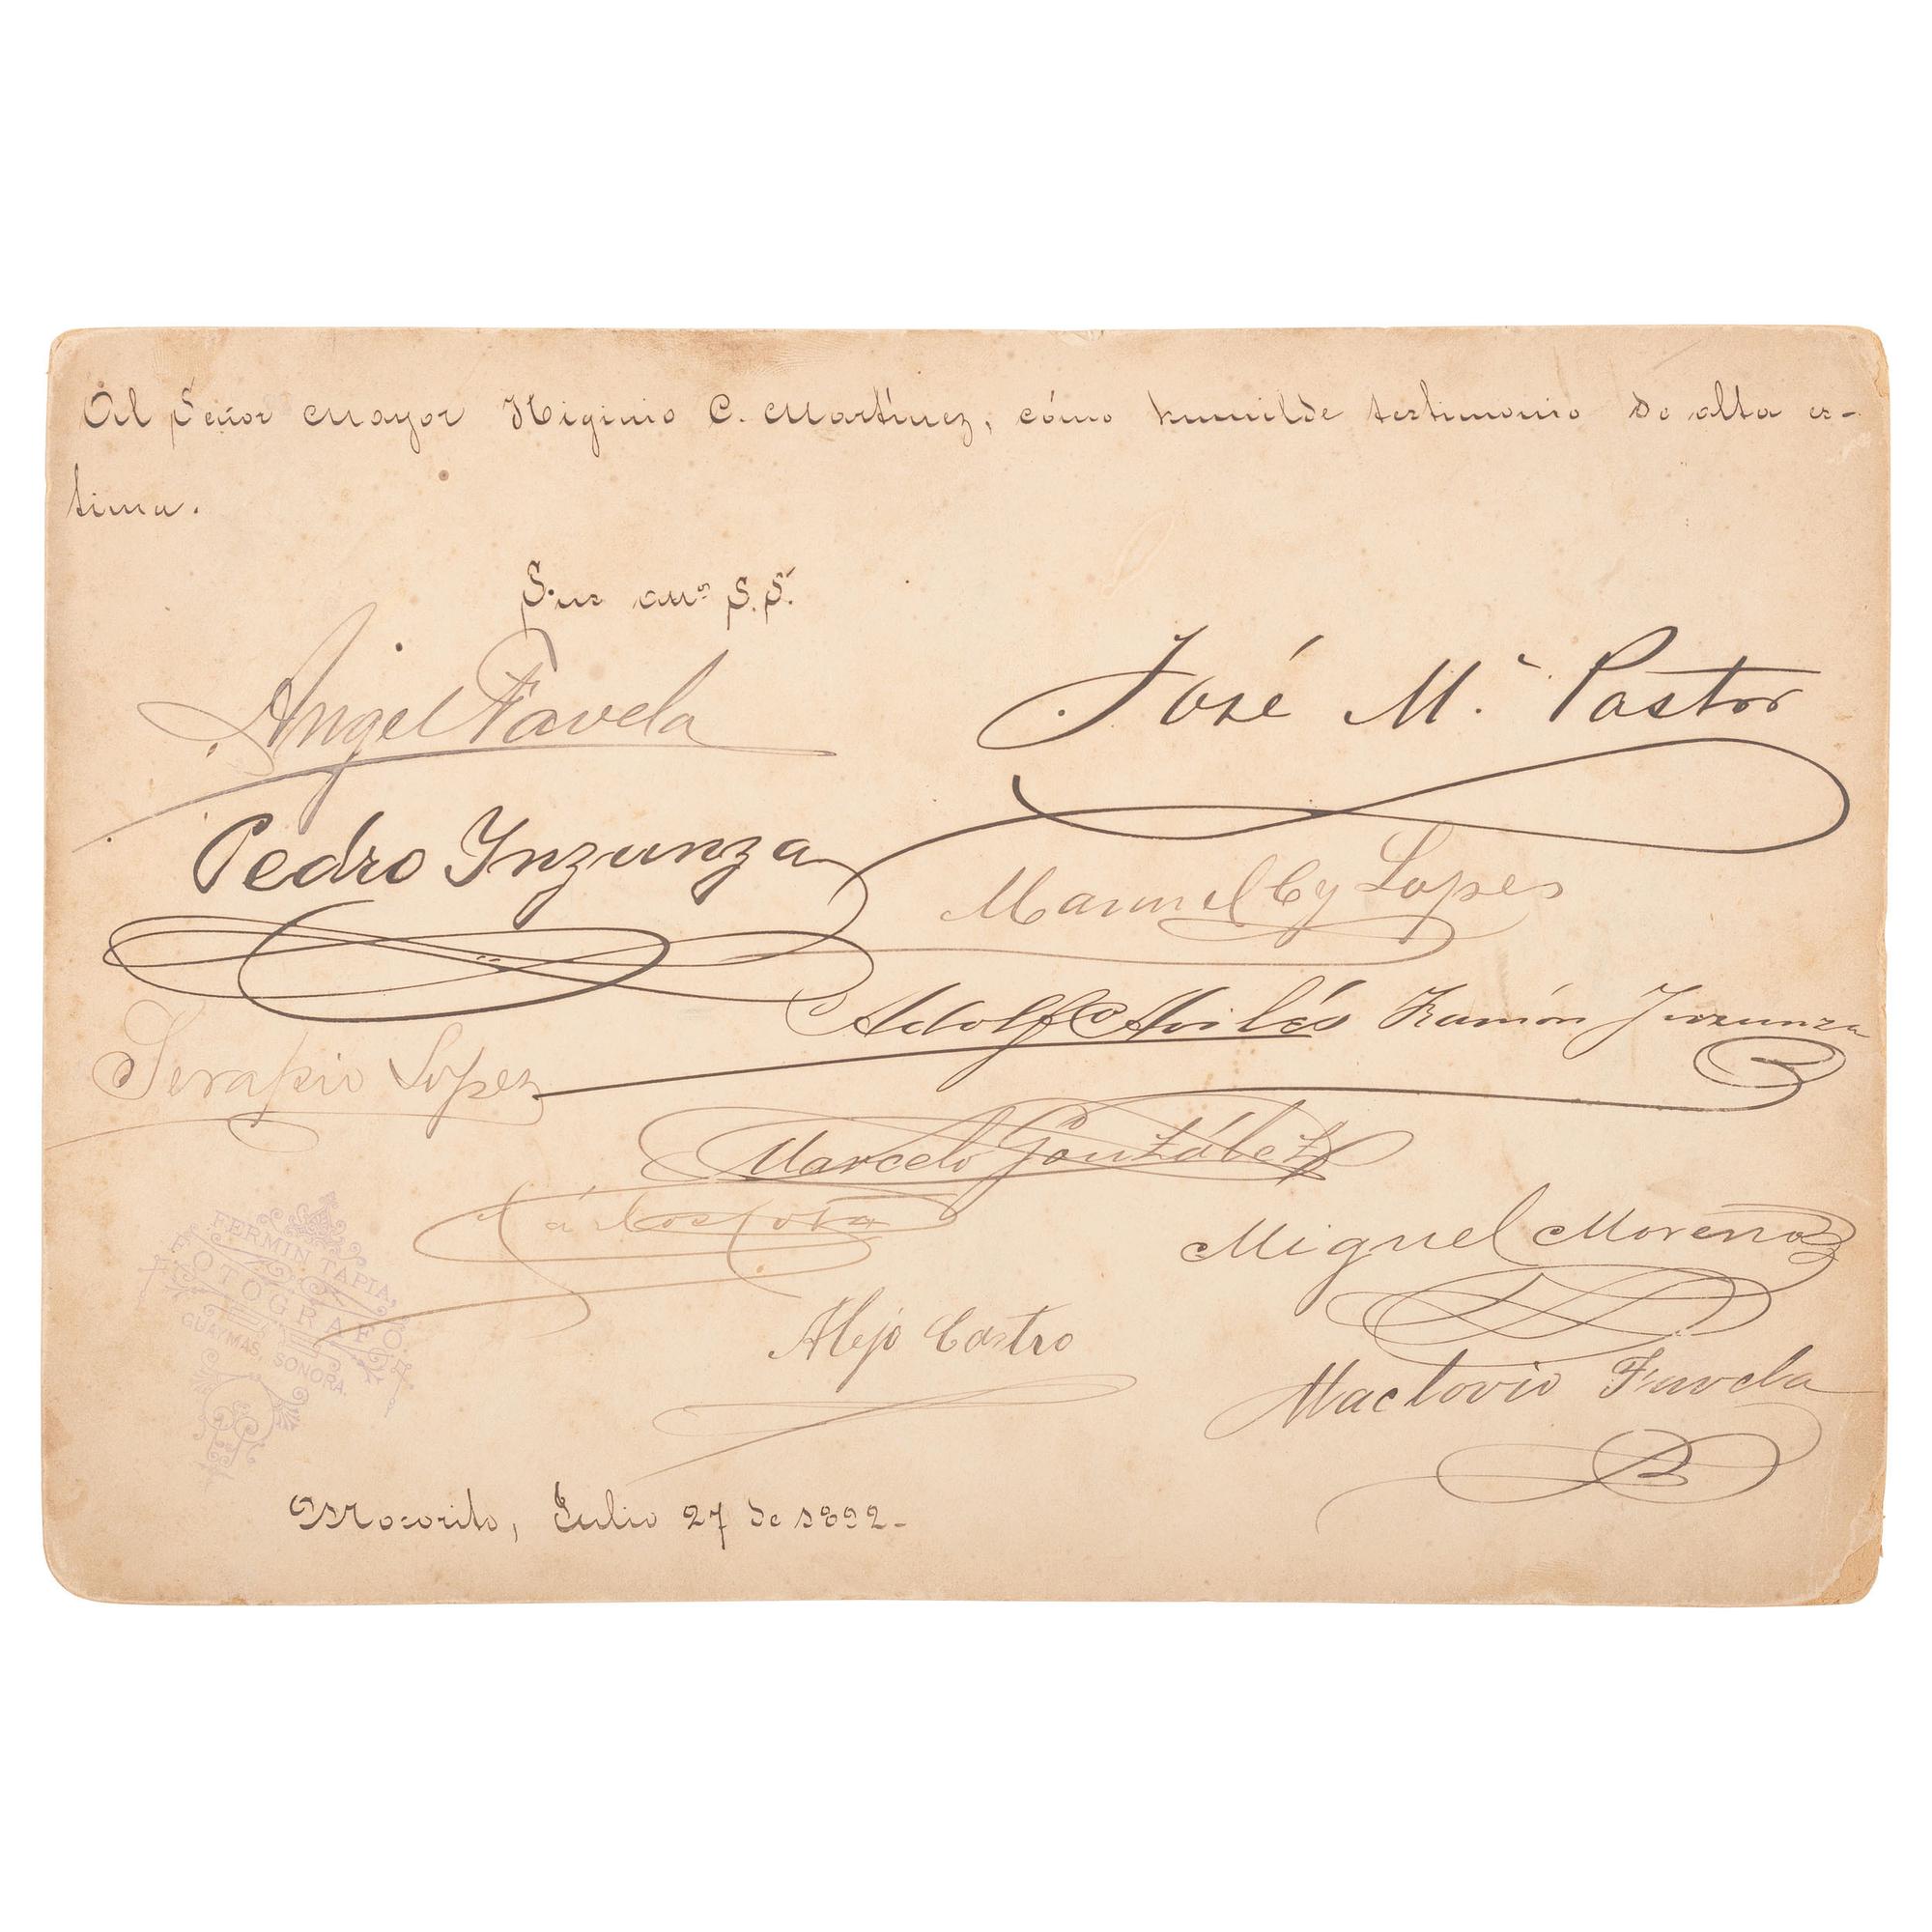 Al Señor Mayor Higinio C. Martínez, cómo humilde testimonio de alta es-
tima.
Sus am^os S.S.
Angel Favela
José Mª Pastor
Pedro Ynzunza
Manuel Cy Lopes
Adolfo Avilés Ramón Inzunza
Serapio Lopez
Marcelo González
Cárlos
Miguel Moreno
Alejo Castro
Maclovio Favela
FERMIN TAPIA,
FOTOGRAFO.
GUAYMAS, SONORA.
Mocorito, Julio 27 de 1892-